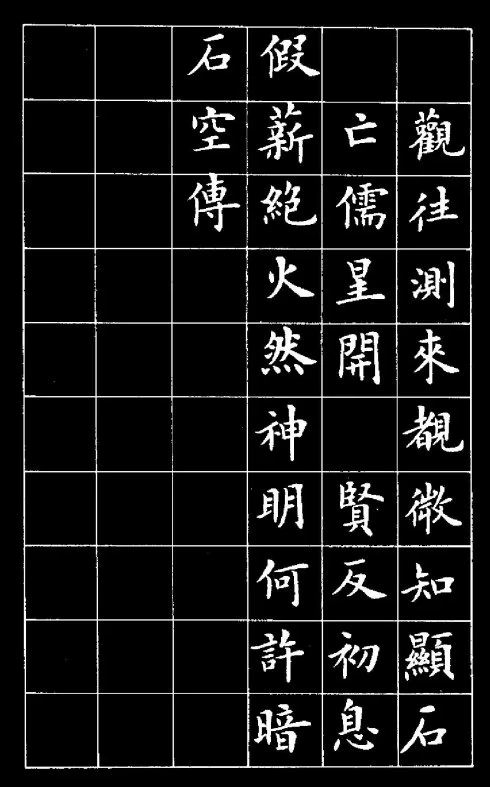 觀往測來覩微知顯石
亡儒星開 賢反初息
假薪絶火然神明何許暗
石空傳